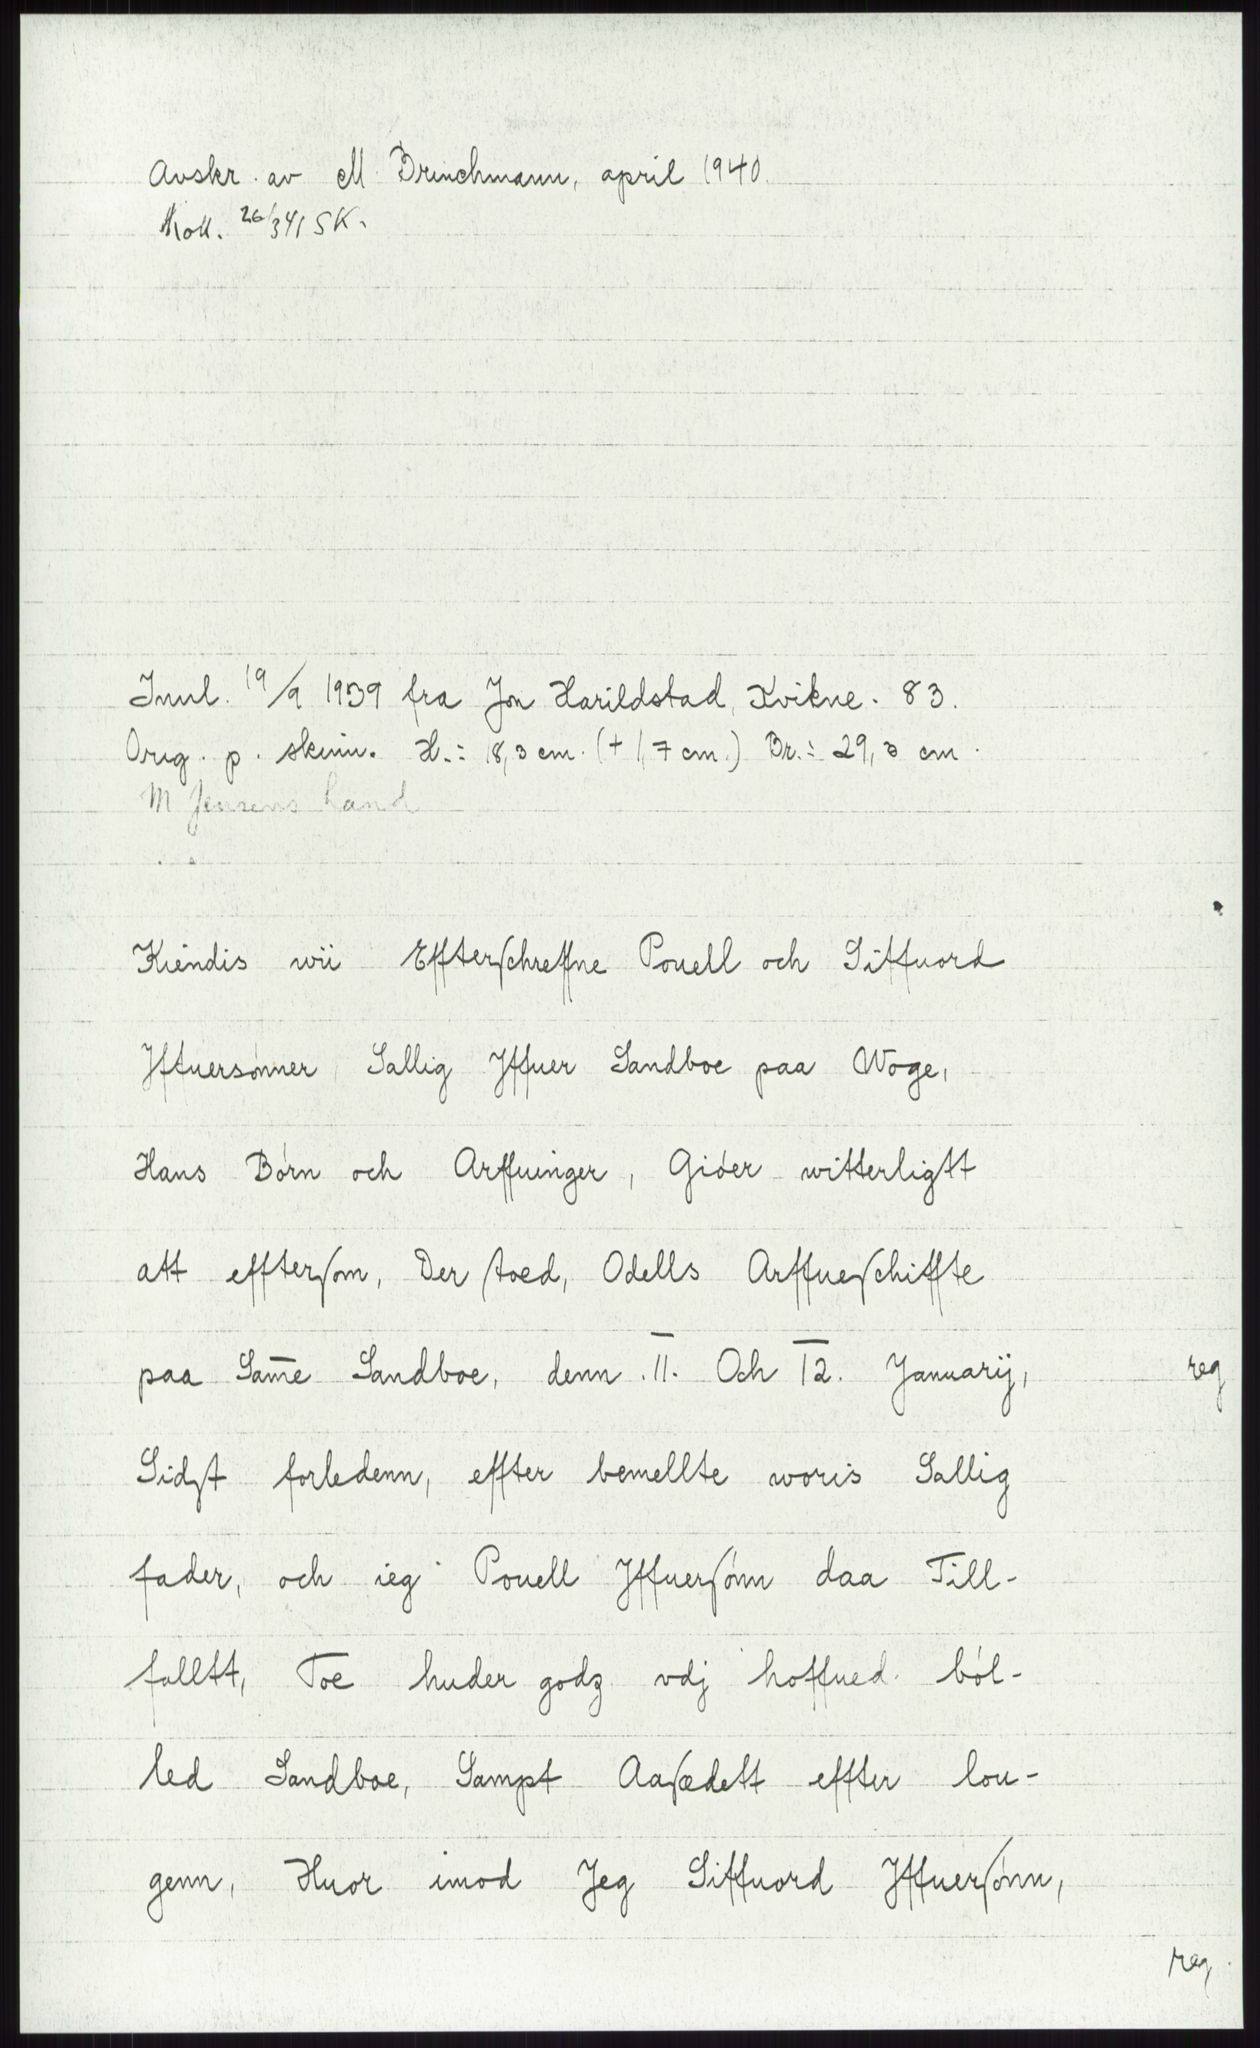 Avskr. av M. Brinchmann, april 1940.
Koll. 26/3 41 SK.
Innl. 19/9 1939 fra Jon Harildstad, Kvikne. 83.
Orig. p. skinn. H.: 18,3 cm. (+ 1,7 cm.) Br.: 29,3 cm.
M Jensens hand
Kiendis wii Effterſchreffne Pouell och Siffuord
Iffuersønner, Sallig Iffuer Sandboe paa Woge,
Hans Børn och Arffuinger, Giøer witterligtt
att effterſom, Der ſtoed, Odells Arffueſchiffte
paa Sam̄e Sandboe, denn .11. Och 12. Januarij,
reg
Sidſt forledenn, effter bemellte woris Sallig
fader, och ieg Pouell Iffuerſønn daa Till-
falltt, Toe huder godz vdj hoffued bøl-
led Sandboe, Sampt Aaſædett effter lou-
genn, Huor imod Jeg Siffuord Iffuerſønn,
reg.